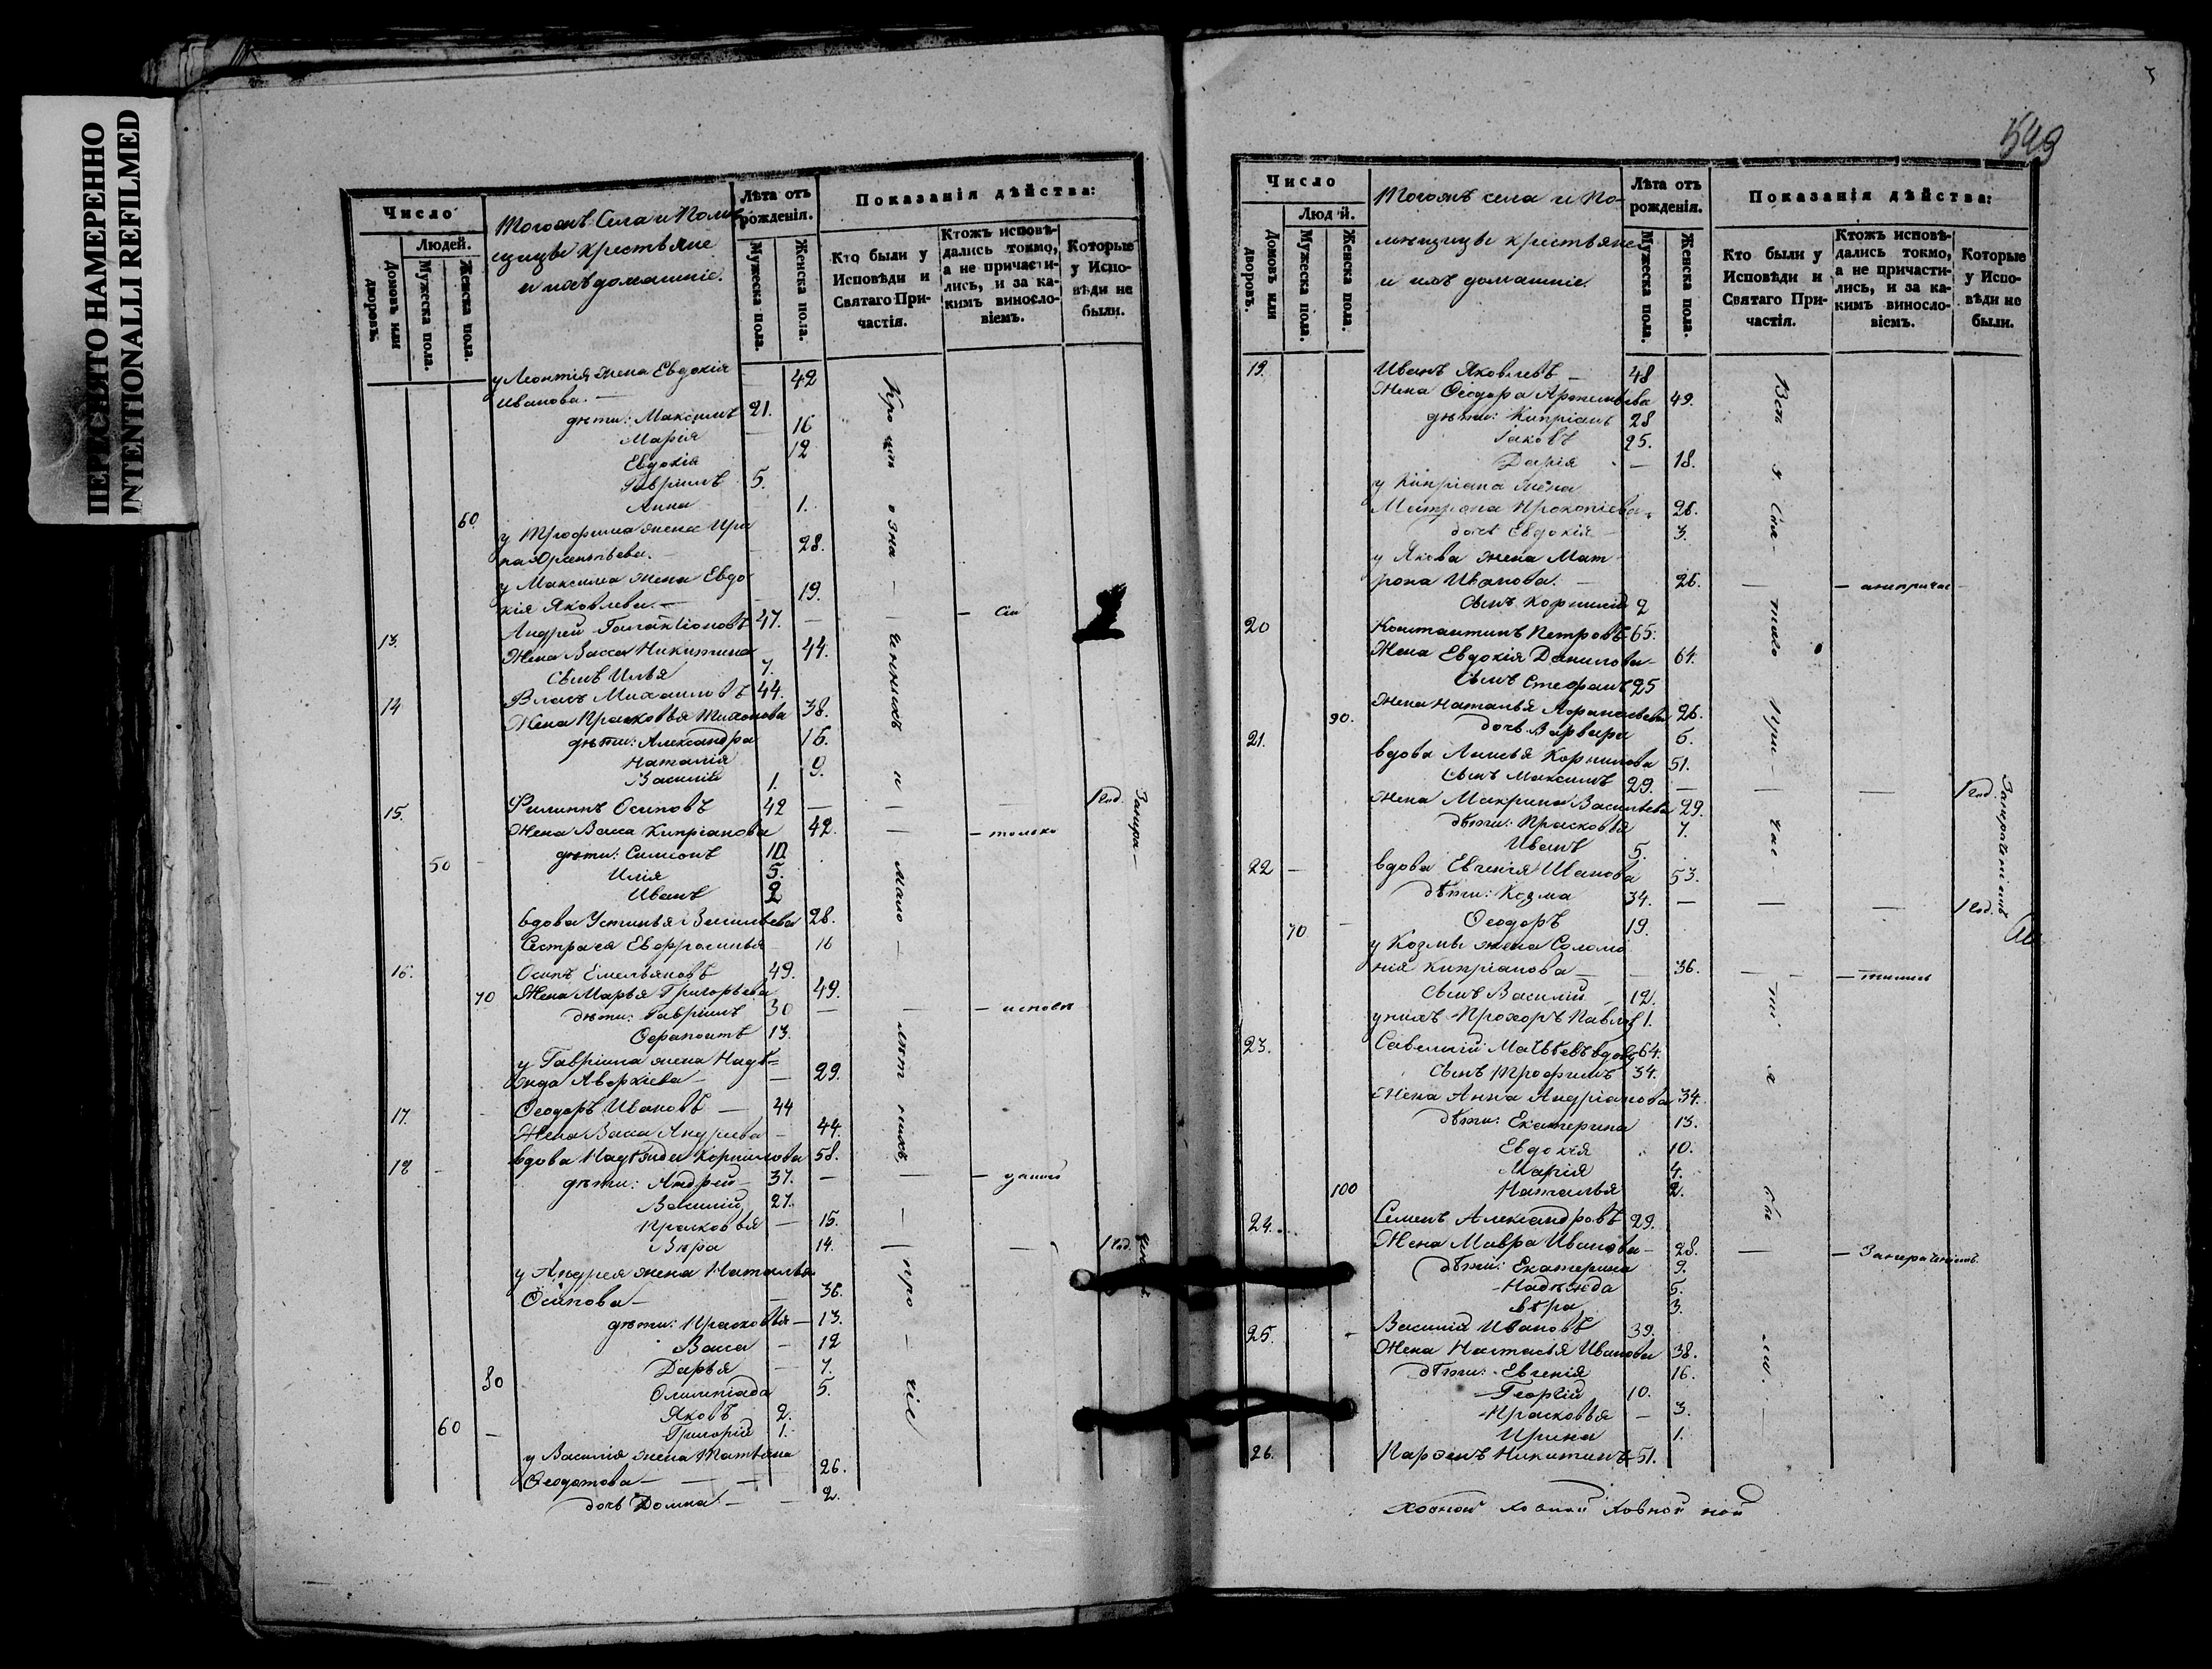 ПЕРЕСНЯТО НАМЕРЕННО
INTENTIONALLI REFILMED
Число
Людей.
Домовъ или дворовъ.
Мужеска пола.
Женска пола.
Тогожъ Села и Поме
щицы Крестьяне
и ихъ домашніе.
Лѣта отъ рожденія.
Мужеска пола.
Женска пола.
Показанія дѣйства:
Кто были у Исповѣди и Святаго Причастія.
Ктожъ исповѣдались токмо, а не причастились, и за какимъ винословіемъ.
Которые у Исповѣди не были.
у Леонтія жена Евдокія 42
Иванова.
дѣти: Максимъ 21.
Марія 16
Евдокія 12
Гавріилъ 5.
60. Анна 1.
у Трофима жена Ири
на 28.
у Максима жена Евдо
кія Яковлева. 19.
13. Андрей Галактіоновъ 47.
Жена Васса Никитина 44.
Сынъ Илья 7.
14 Власъ Михаиловъ 44.
Жена Прасковья Тихонова 38.
дѣти: Александра 16.
Наталія 9.
Василій 1.
15. Филиппъ Осиповъ 42 1 год.
Жена Васса Кипріанова 42. только
50 дѣти: Симеонъ 10
Илія 5.
Иванъ 2
вдова Устинья Васильева 28.
Сестра ея Евфросинья 16
16. Осипъ Емельяновъ 49.
70 Жена Марья Григорьева 49.
дѣти: Гавріилъ 30
Ферапонтъ 13.
у Гавріила жена Надѣ=
жда Аверкіева 29.
17. Ѳеодоръ Ивановъ 44
Жена Васса Андреева 44.
18 вдова Надѣжда Корнилова 58.
дѣти: Андрей 37.
Василій 27.
Прасковья 15.
Вѣра 14. 1 год.
у Андрея жена Наталья
Осипова 36.
дѣти: Прасковья 13.
Васса 12
80 Дарья 7.
Олимпіада 5.
Яковъ 2.
60 Григорій 1.
у Василія жена Татьяна
Ѳедотова 26.
дочь Домна 2.
549
Число
Людей.
Домовъ или дворовъ.
Мужеска пола.
Женска пола.
Тогожъ села и По-
мѣщицы крестьяне
и ихъ домашніе.
Лѣта отъ рожденія.
Мужеска пола.
Женска пола.
Показанія дѣйства:
Кто были у Исповѣди и Святаго Причастія.
Ктожъ исповѣдались токмо, а не причастились, и за какимъ винословіемъ.
Которые у Исповѣди не были.
19. Иванъ Яковлевъ 48
Жена Ѳеодора Артемьева 49.
дѣти: Кипріанъ 28
Іаковъ 25.
Дарія 18.
у Кипріана жена
Матрона Прокопіева 26.
дочь Евдокія 3.
у Якова жена Мат
рона Иванова. 26.
Сынъ Корнилій 2
20 Константинъ Петровъ 65.
Жена Евдокія Данилова 64.
Сынъ Стефанъ 25
90. жена Наталья 26.
дочь Варвара 6.
21. вдова Корнилова 51.
Сынъ Максимъ 29. 1 год.
жена Макрина Васильева 29.
дѣти: Прасковья 7.
Иванъ 5.
22 вдова Евгенія Иванова 53.
дѣти: Козма 34. 1 год.
70 Ѳеодоръ 19.
у Козмы жена Соломо
нія Кипріанова 36.
Сынъ Василій 12.
у нихъ Прохоръ Павловъ 1.
23. Савелій вдовъ 64.
Сынъ Трофимъ 34.
Жена Анна Андріанова 34.
дѣти: Екатерина 13.
Евдокія 10.
Марія 4.
100 Наталья 2.
24. Семенъ Александровъ 29.
Жена Мавра Иванова 28.
дѣти: Екатерина 9.
Надѣжда 5.
Вѣра 3.
25. Василій Ивановъ 39.
Жена Настасья Иванова 38.
дѣти: Евгенія 16.
Георгій 10.
Прасковья 3.
Ирина 1.
26. Парѳенъ Никитинъ 51.